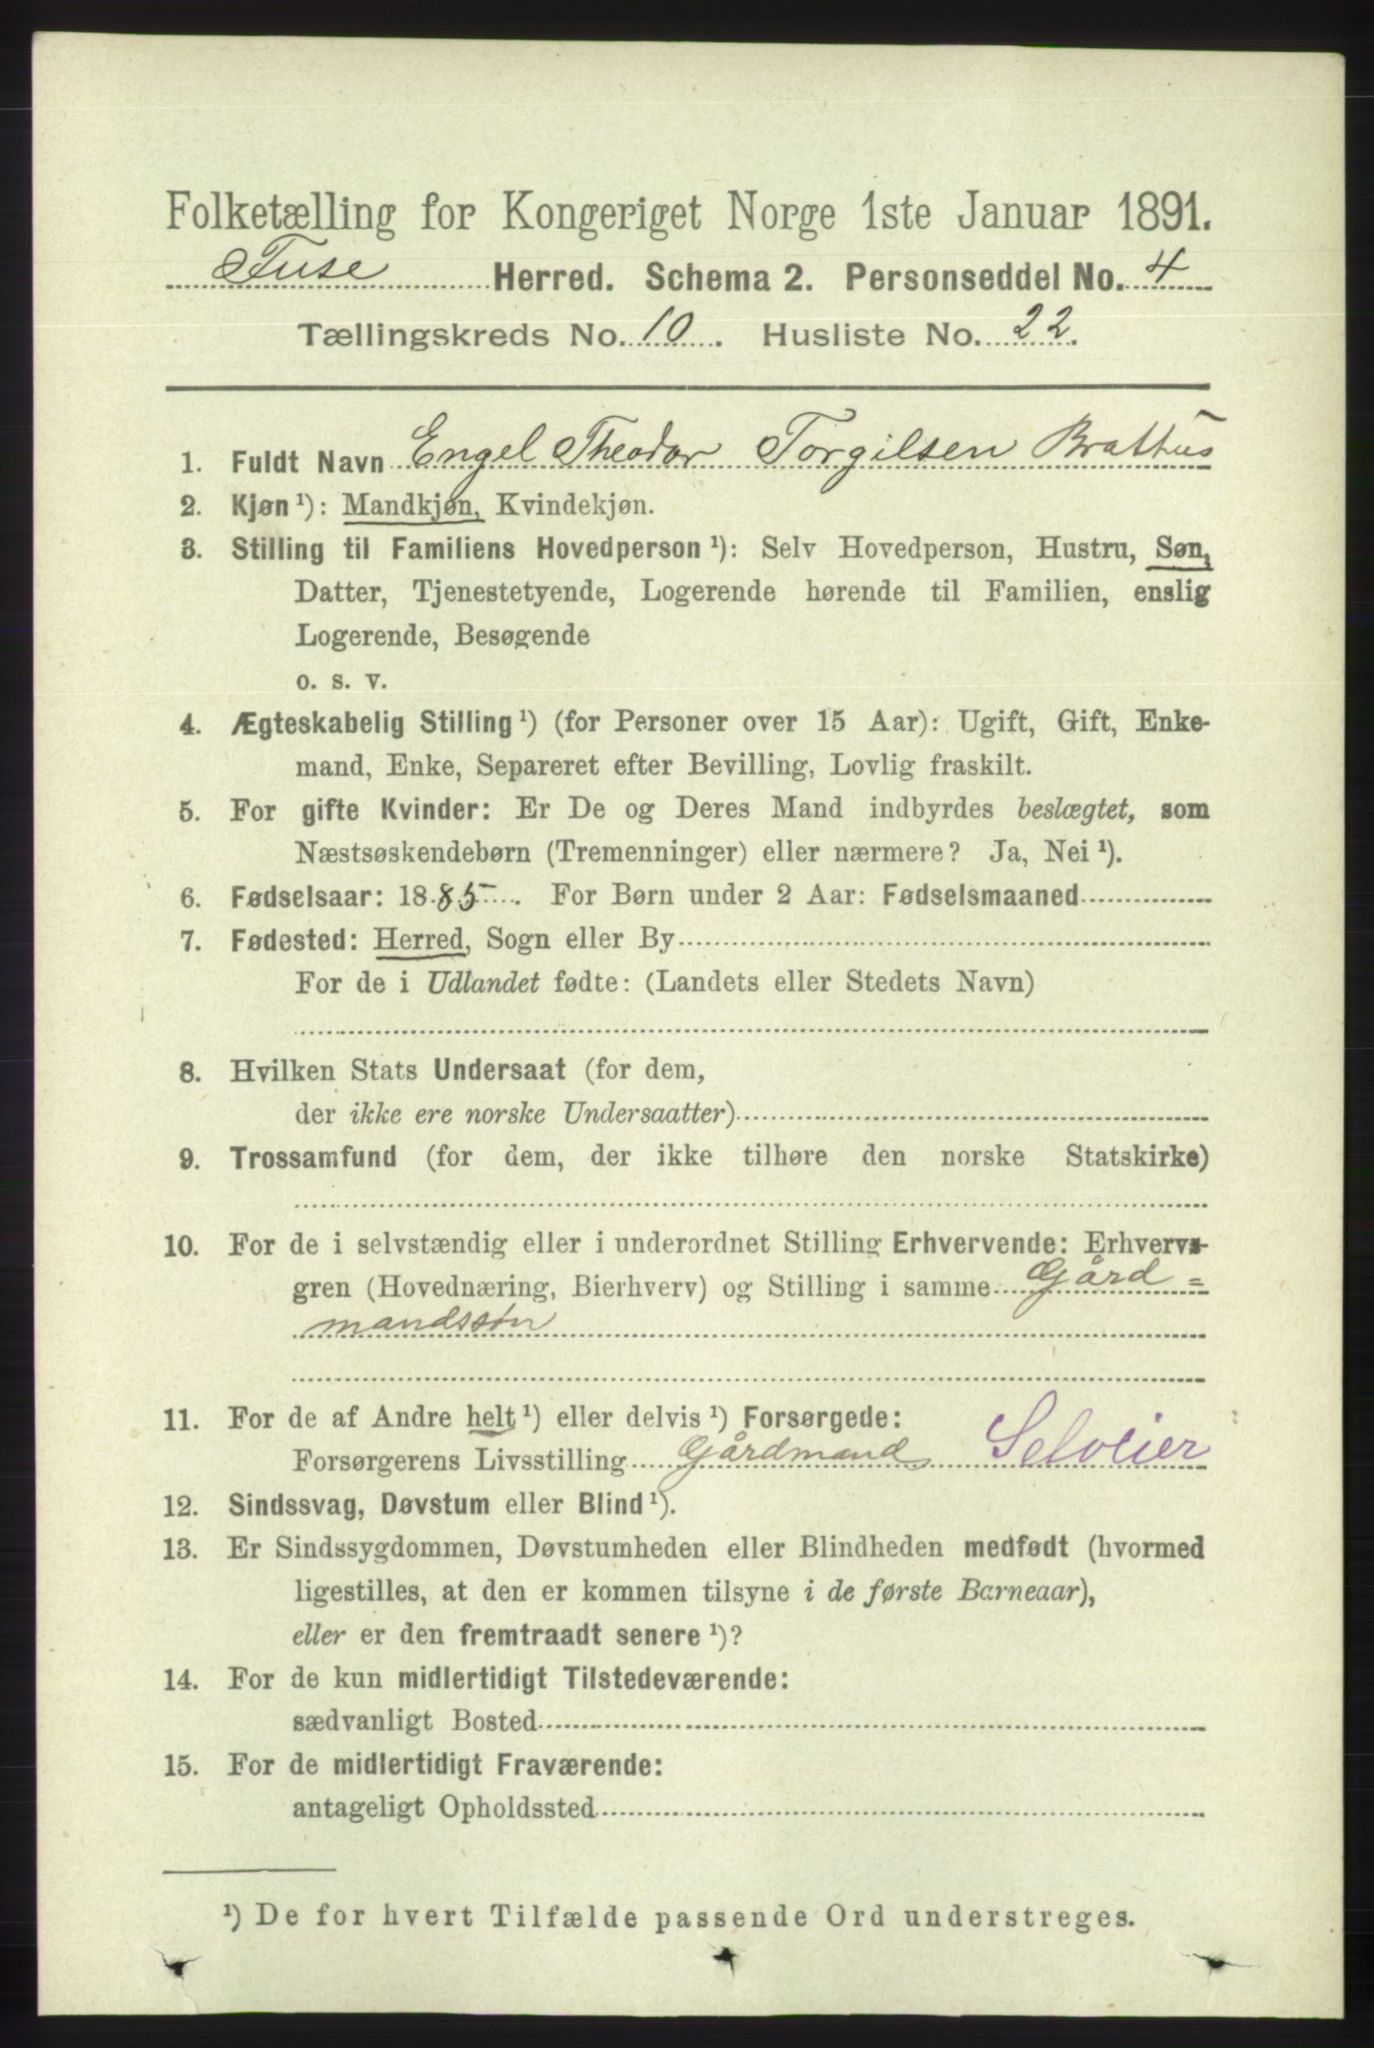 Folketælling for Kongeriget Norge 1ste Januar 1891.
Fuse Herred. Schema 2. Personseddel No. 4
Tællingskreds No. 10. Husliste No. 22.
1. Fuldt Navn Engel Theodor Torgilsen Brathus
2. Kjøn ¹): Mandkjøn, Kvindekjøn.
3. Stilling til Familiens Hovedperson ¹): Selv Hovedperson, Hustru, Søn,
Datter, Tjenestetyende, Logerende hørende til Familien, enslig
Logerende, Besøgende
o. s. v.
4. Ægteskabelig Stilling ¹) (for Personer over 15 Aar): Ugift, Gift, Enke-
mand, Enke, Separeret efter Bevilling, Lovlig fraskilt.
5. For gifte Kvinder: Er De og Deres Mand indbyrdes beslægtet, som
Næstsøskendebørn (Tremenninger) eller nærmere? Ja, Nei ¹).
6. Fødselsaar: 1885. For Børn under 2 Aar: Fødselsmaaned
7. Fødested: Herred, Sogn eller By
For de i Udlandet fødte: (Landets eller Stedets Navn)
8. Hvilken Stats Undersaat (for dem,
der ikke ere norske Undersaatter)
9. Trossamfund (for dem, der ikke tilhøre den norske Statskirke)
10. For de i selvstændig eller i underordnet Stilling Erhvervende: Erhvervs-
gren (Hovednæring, Bierhverv) og Stilling i samme Gård=
mandssøn
11. For de af Andre helt ¹) eller delvis ¹) Forsørgede:
Forsørgerens Livsstilling Gårdmand Selveier
12. Sindssvag, Døvstum eller Blind ¹).
13. Er Sindssygdommen, Døvstumheden eller Blindheden medfødt (hvormed
ligestilles, at den er kommen tilsyne i de første Barneaar),
eller er den fremtraadt senere ¹)?
14. For de kun midlertidigt Tilstedeværende:
sædvanligt Bosted
15. For de midlertidigt Fraværende:
antageligt Opholdssted
¹) De for hvert Tilfælde passende Ord understreges.